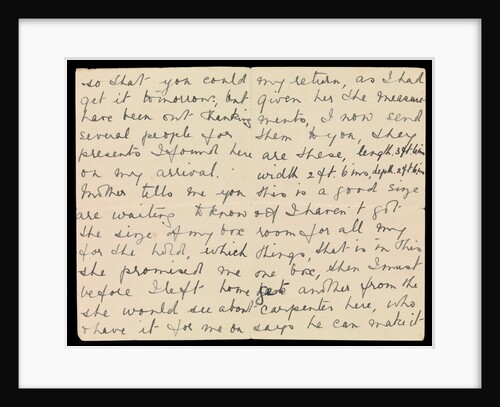 so that you could
get it tomorrow, but
have been out thanking
several people for
presents I found here
on my arrival.
Mother tells me you
are waiting to know
the size of my box
for the hold, which
she promised me
before I left home
she would see about
& have it for me on
my return, as I had
given her the measure-
ments, I now send
them to you, they
are these, length 3ft 6ins
width 2ft. 6ins, depth 2ft 6ins
this is a good size
if I haven't got
room for all my
things, that is in this
one box, then I must
get another from the
carpenter here, who
says he can make it